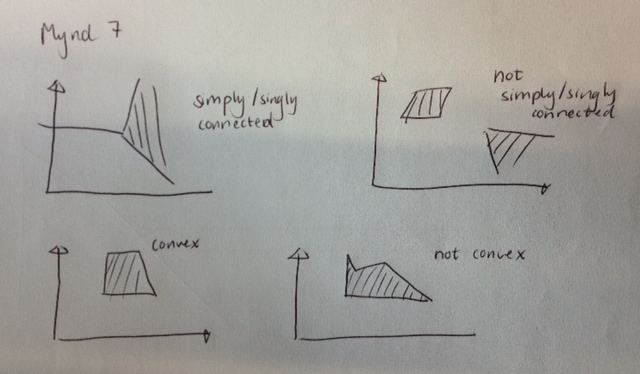 Mynd 7
simply/singly
connected
not
simply/singly
connected
convex
not convex